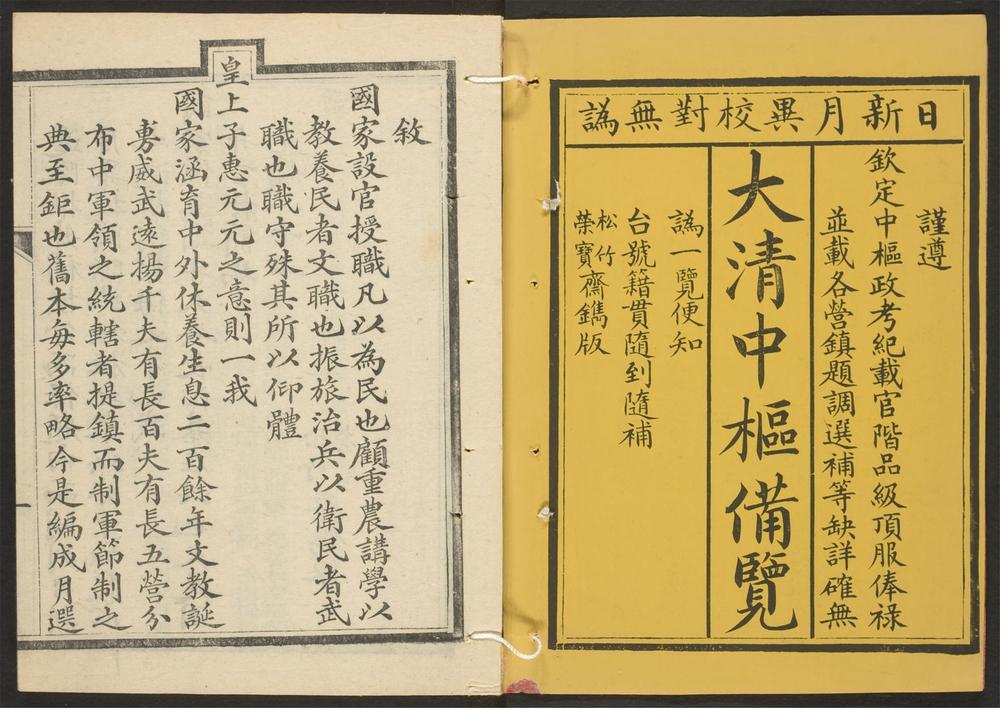 日新月異校對無譌
謹遵
欽定中樞政考紀載官階品級頂服俸祿
並載各營鎮題調選補等缺詳確無
大清中樞備覽
譌一覽便知
台號籍貫隨到隨補
松竹
榮寶齋鐫版
敘
國家設官授職凡以為民也顧重農講學以
教養民者文職也振旅治兵以衛民者武
職也職守殊其所以仰體
皇上子惠元元之意則一我
國家涵育中外休養生息二百餘年文教誕
旉威武遠揚千夫有長百夫有長五營分
布中軍領之統轄者提鎮而制軍節制之
典至鉅也舊本每多率略今是編成月選